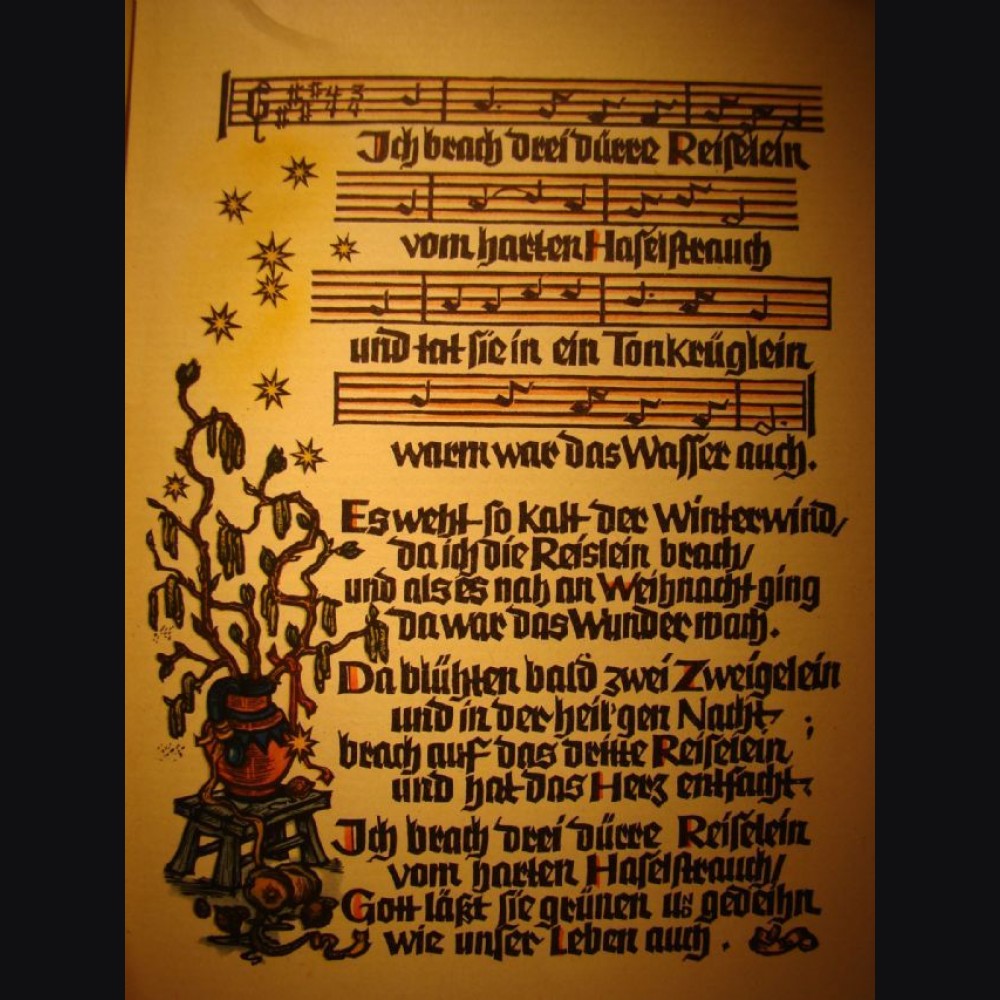 Ich brach drei dürre Reiselein
vom harten Haselstrauch
und tat sie in ein Tonkrüglein
warm war das Wasser auch.
Es weht so kalt der Winterwind/
da ich die Reislein brach/
und als es nah an Weihnacht ging
da war das Wunder wach.
Da blühten bald zwei Zweigelein
und in der heil'gen Nacht ;
brach auf das dritte Reiselein
und hat das Herz entfacht.
Ich brach drei dürre Reiselein
vom harten Haselstrauch/
Gott läßt sie grünen und gedeihn
wie unser Leben auch .